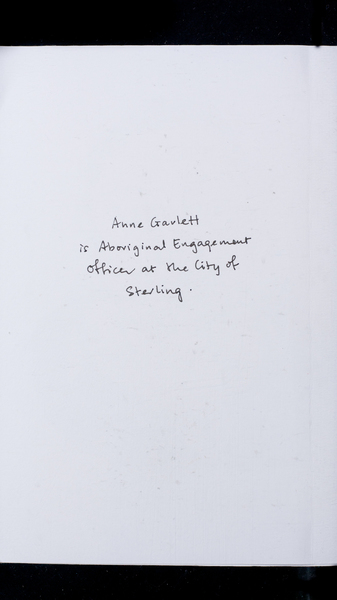 Anne Garlett
is Aboriginal Engagement
Officer at the City of
Sterling.